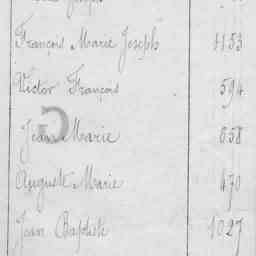 François Marie Joseph 1153
Victor François 594
Jean Marie 658
Auguste Marie 470
Jean Baptiste 1027